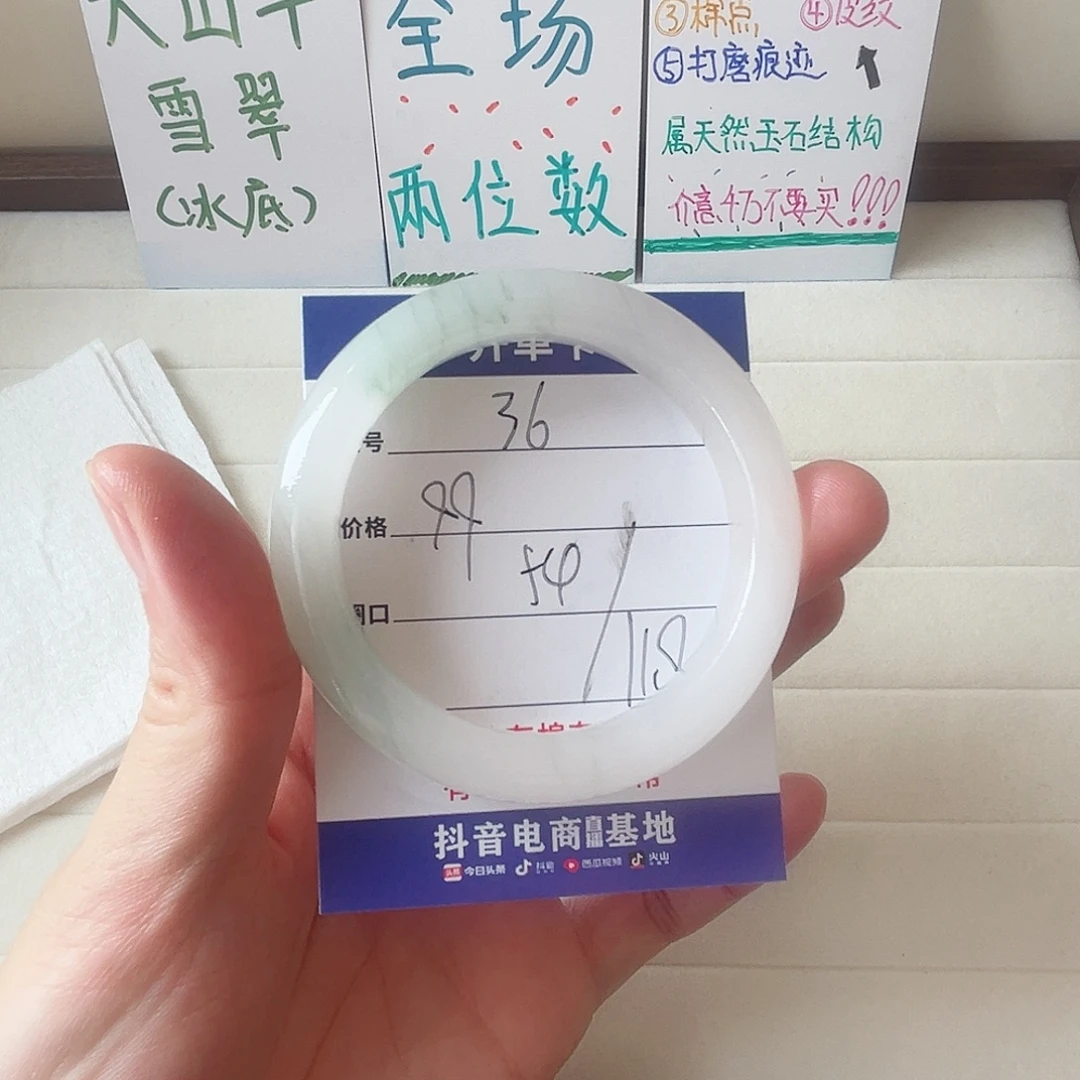 雪翠
(冰底)
全场
两位数
③棉点 ④皮纹
⑤打磨痕迹
属天然玉石结构
介意千万不要买!!!
开单卡
号 36
价格 99
圈口 54
/118
抖音电商直播基地
头条 今日头条 抖音 西瓜视频 火山